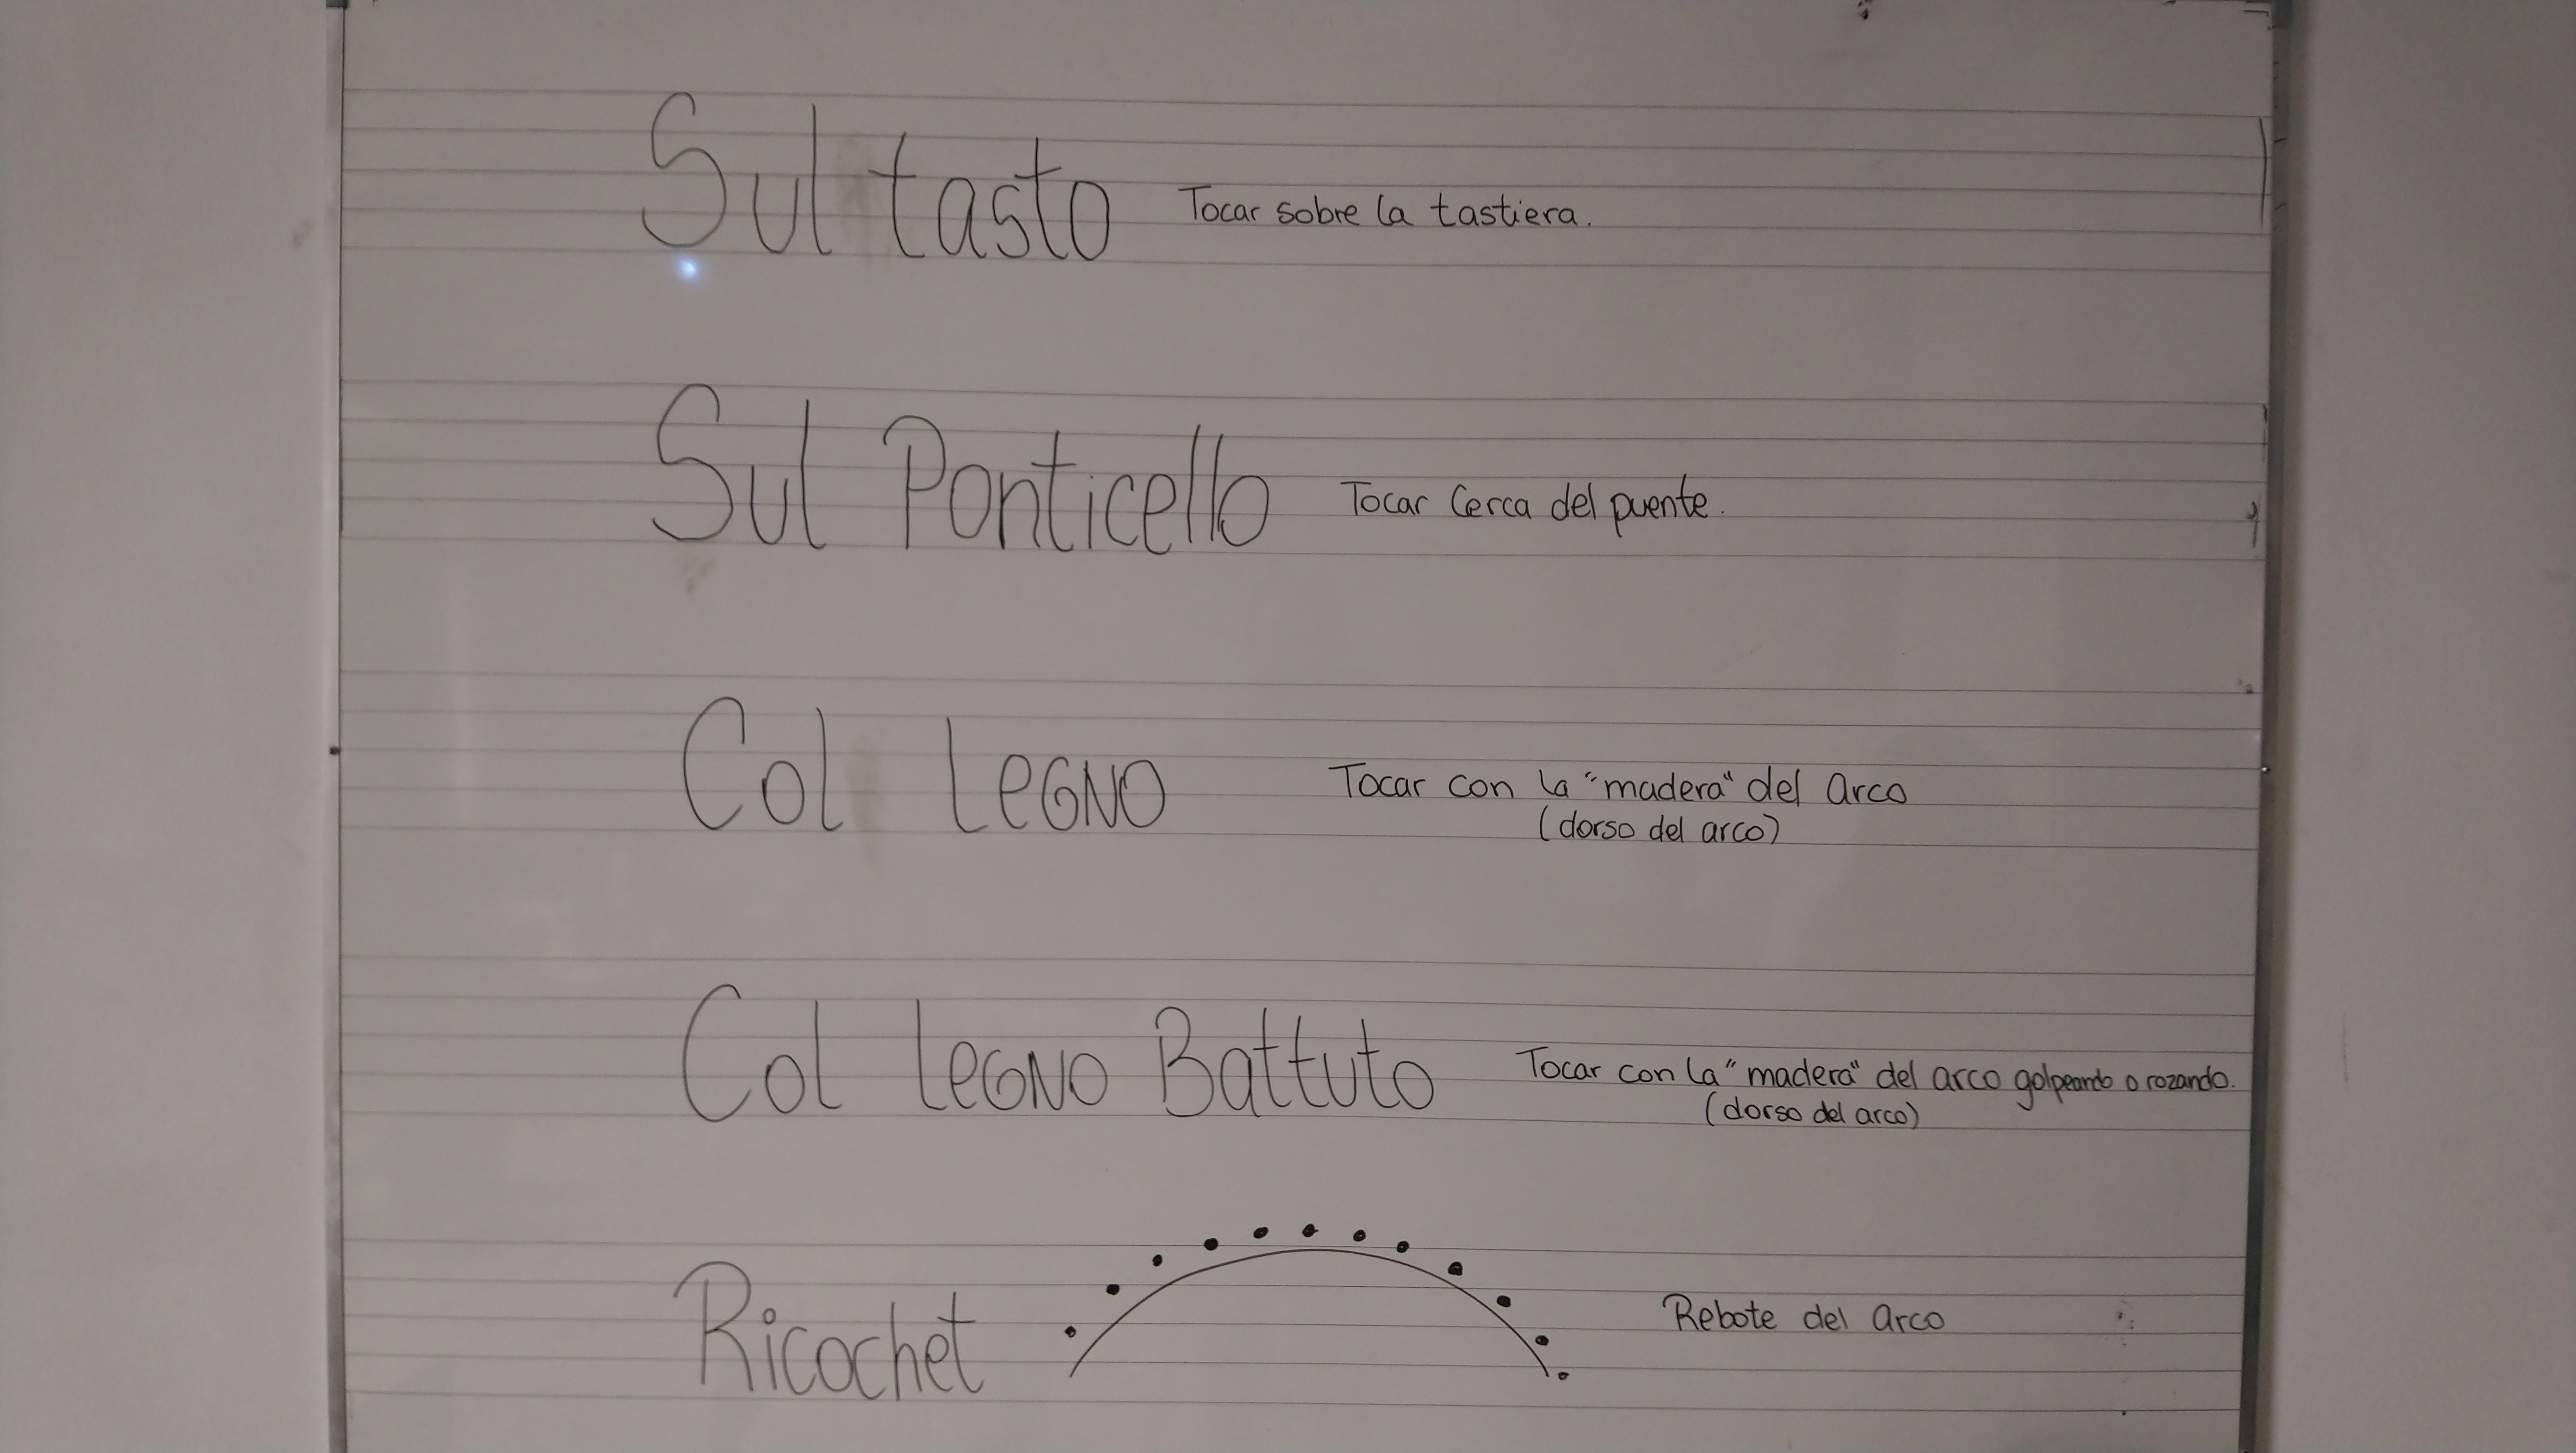 Sul tasto Tocar sobre la tastiera.
Sul Ponticello Tocar Cerca del puente.
Col LeGNO Tocar con la "madera" del arco
(dorso del arco)
Col LeGNO Battuto Tocar con la "madera" del arco golpeando o rozando.
(dorso del arco)
Ricochet Rebote del arco